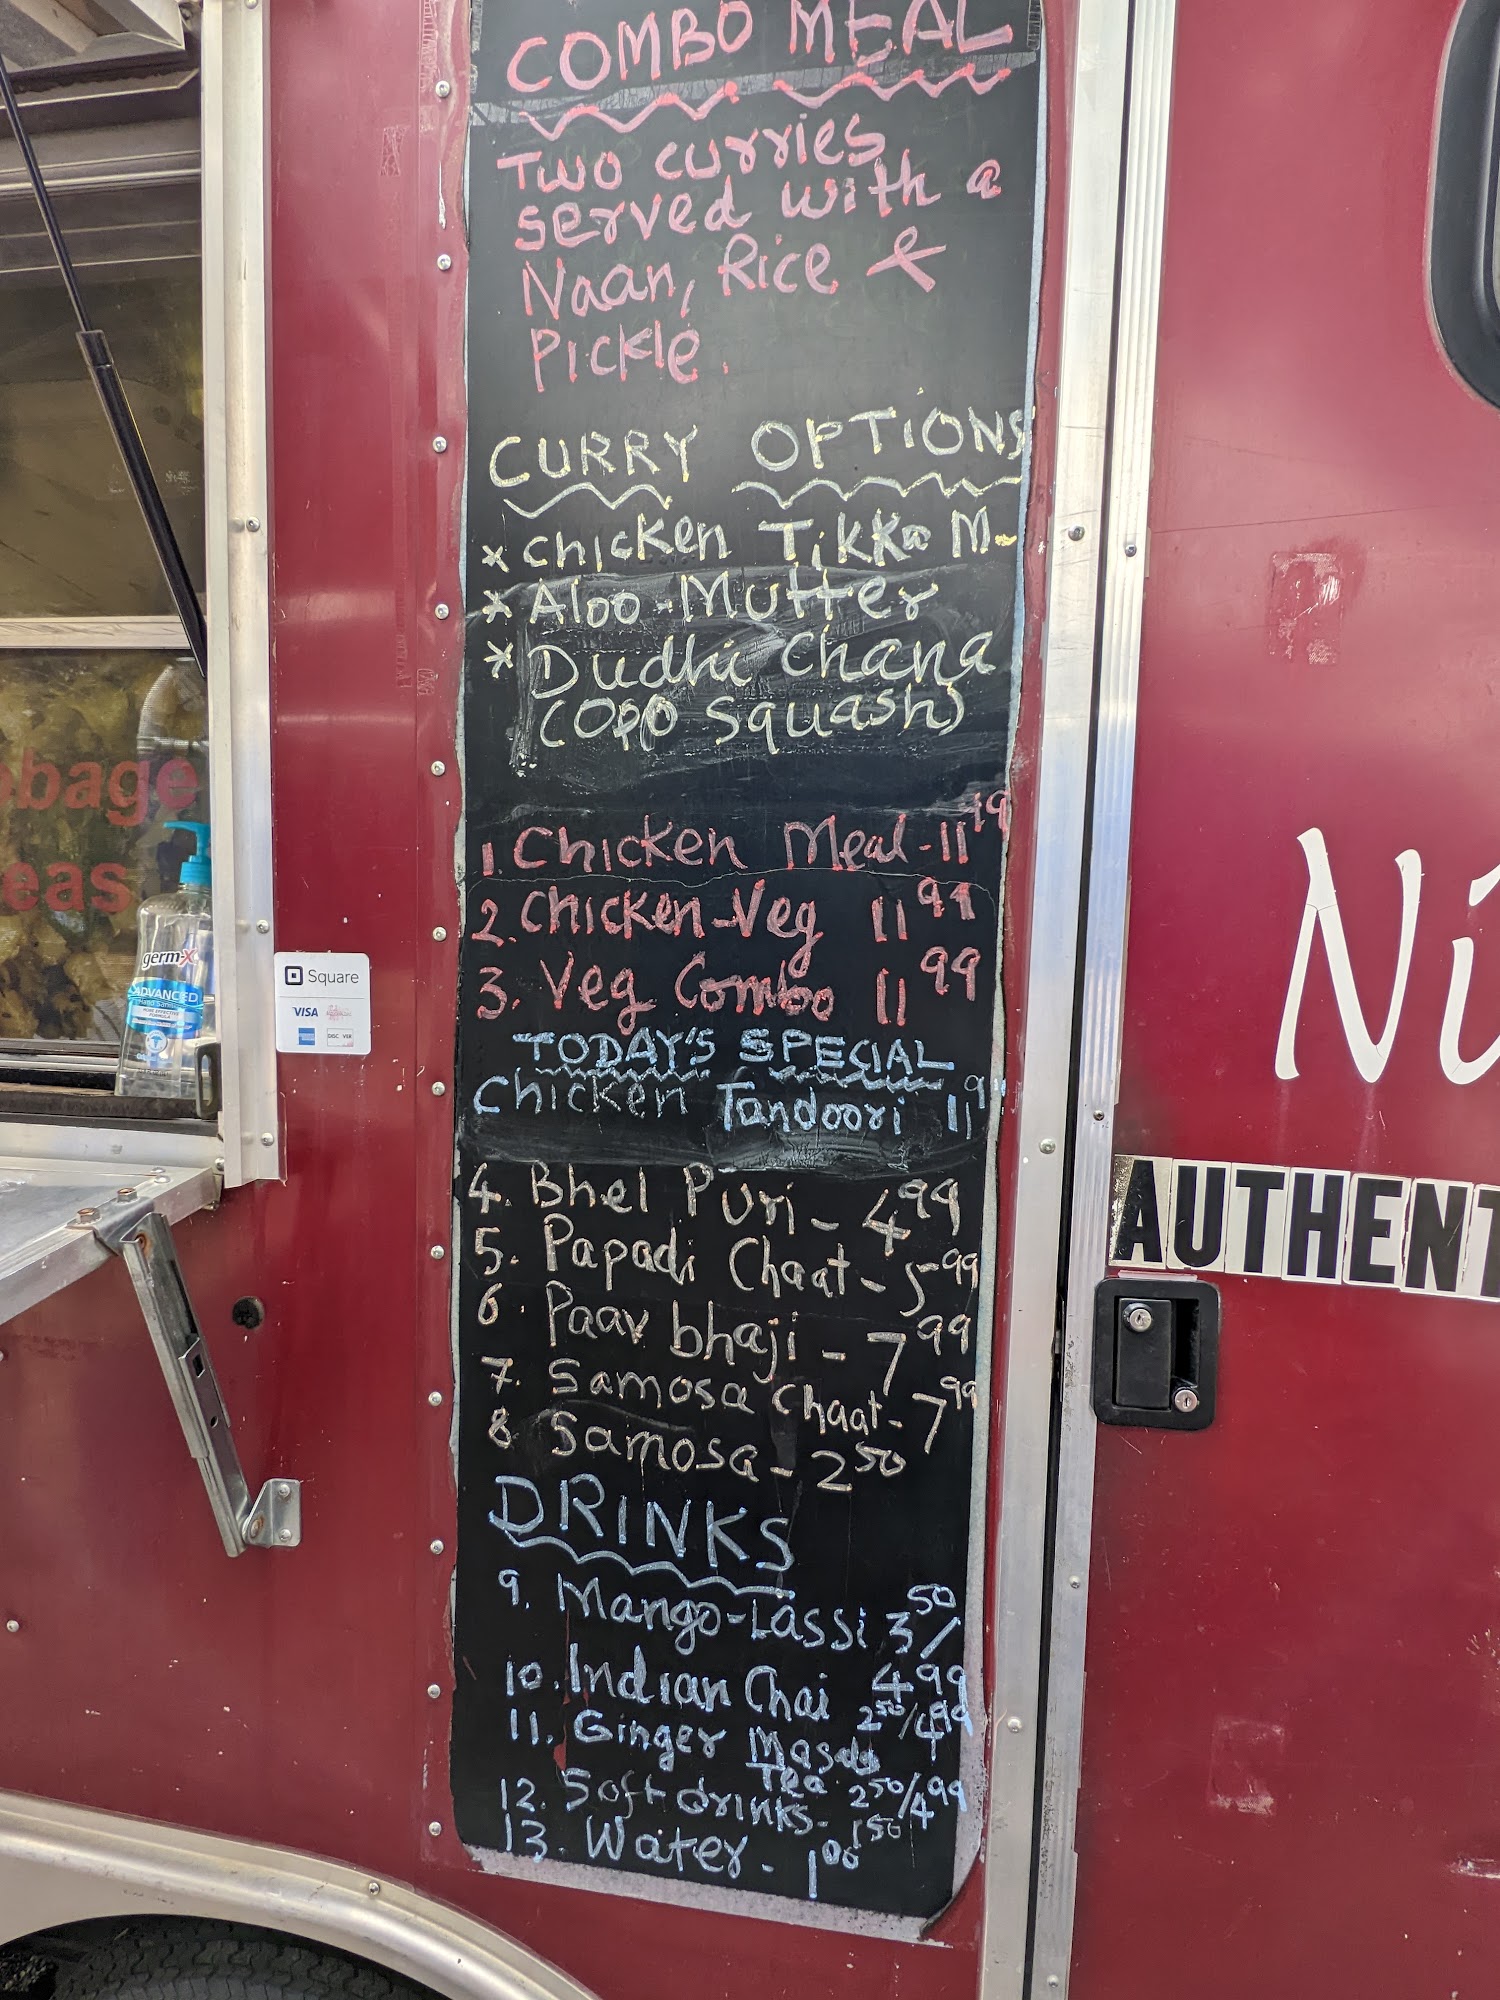 COMBO MEAL
Two curries
served with a
Naan, Rice &
Pickle.
CURRY OPTIONS
x Chicken Tikka M-
x Aloo-Mutter
x Dudhi Chana
(Opo Squash)
1. Chicken Meal-11 99
2. Chicken-Veg 11 99
3. Veg Combo 11 99
TODAY'S SPECIAL
Chicken Tandoori 11
4. Bhel Puri - 4 99
5. Papadi Chaat - 5 99
6. Paav bhaji - 7 99
7. Samosa Chaat - 7 99
8. Samosa - 2 50
DRINKS
9. Mango-Lassi 3 50/
4 99
10. Indian Chai 2 50/4 99
11. Ginger Masala
Tea 2 50/4 99
12. Soft drinks - 1 50
13. Water - 1 00
bbage
eas
germ-x
ADVANCED
Hand Sanitizer
Square
VISA
DISCOVER
Ni
AUTHENT